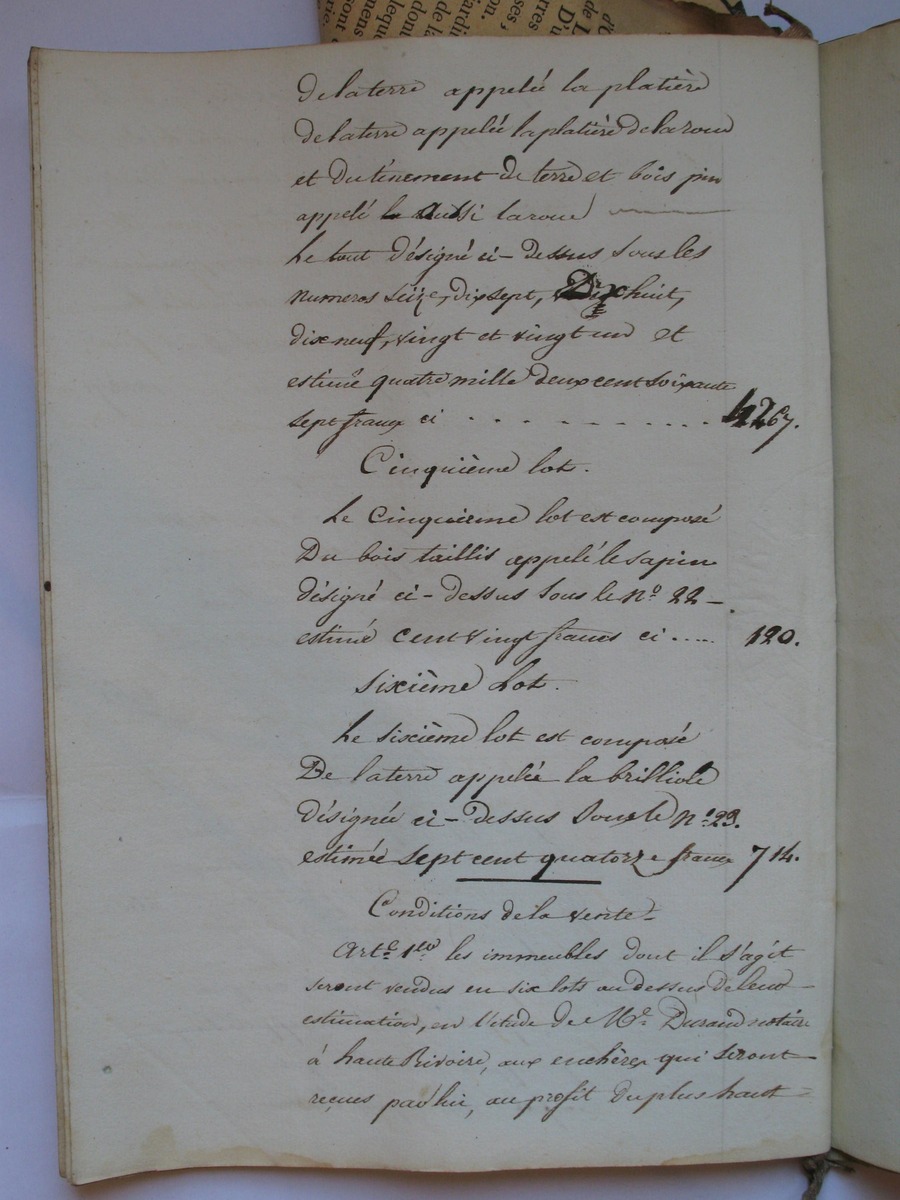 d'O
de L
D'u
rres
ses ;
on.
jardi
de la
dont
leque
mens
sont
rie.
de la terre appelée la platière
de la terre appelée la platière de la roue
et du ténement de terre et bois pin
appelé aussi la roue
Le tout désigné ci-dessus sous les
numeros seize, dix sept, Dix huit,
dix neuf, vingt et vingt un et
estimé quatre mille deux cent soixante
sept francs ci . . . . . . . . . . . 4267.
Cinquième lot.
Le Cinquième lot est composé
Du bois taillis appelé le sapin
désigné ci-dessus sous le No. 22 -
estimé cent vingt francs ci ..... 120.
Sixième Lot.
Le sixième lot est composé
De la terre appelée la brilliole
désignée ci-dessus sous le No. 23.
estimée sept cent quatorze francs 714.
Conditions de la vente -
Arte. 1er. les immeubles dont il s'agit
seront vendus en six lots au dessus de leur
estimation, en l'étude de Me. Durand notaire
à haute Rivoire, aux enchères qui seront
reçues par lui, au profit du plus haut